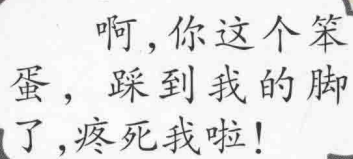 啊,你这个笨
蛋，踩到我的脚
了,疼死我啦!